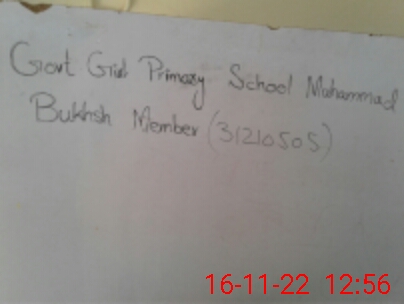 Govt Girl Primary School Muhammad
Bukhsh Member (31210505)
16-11-22 12:56